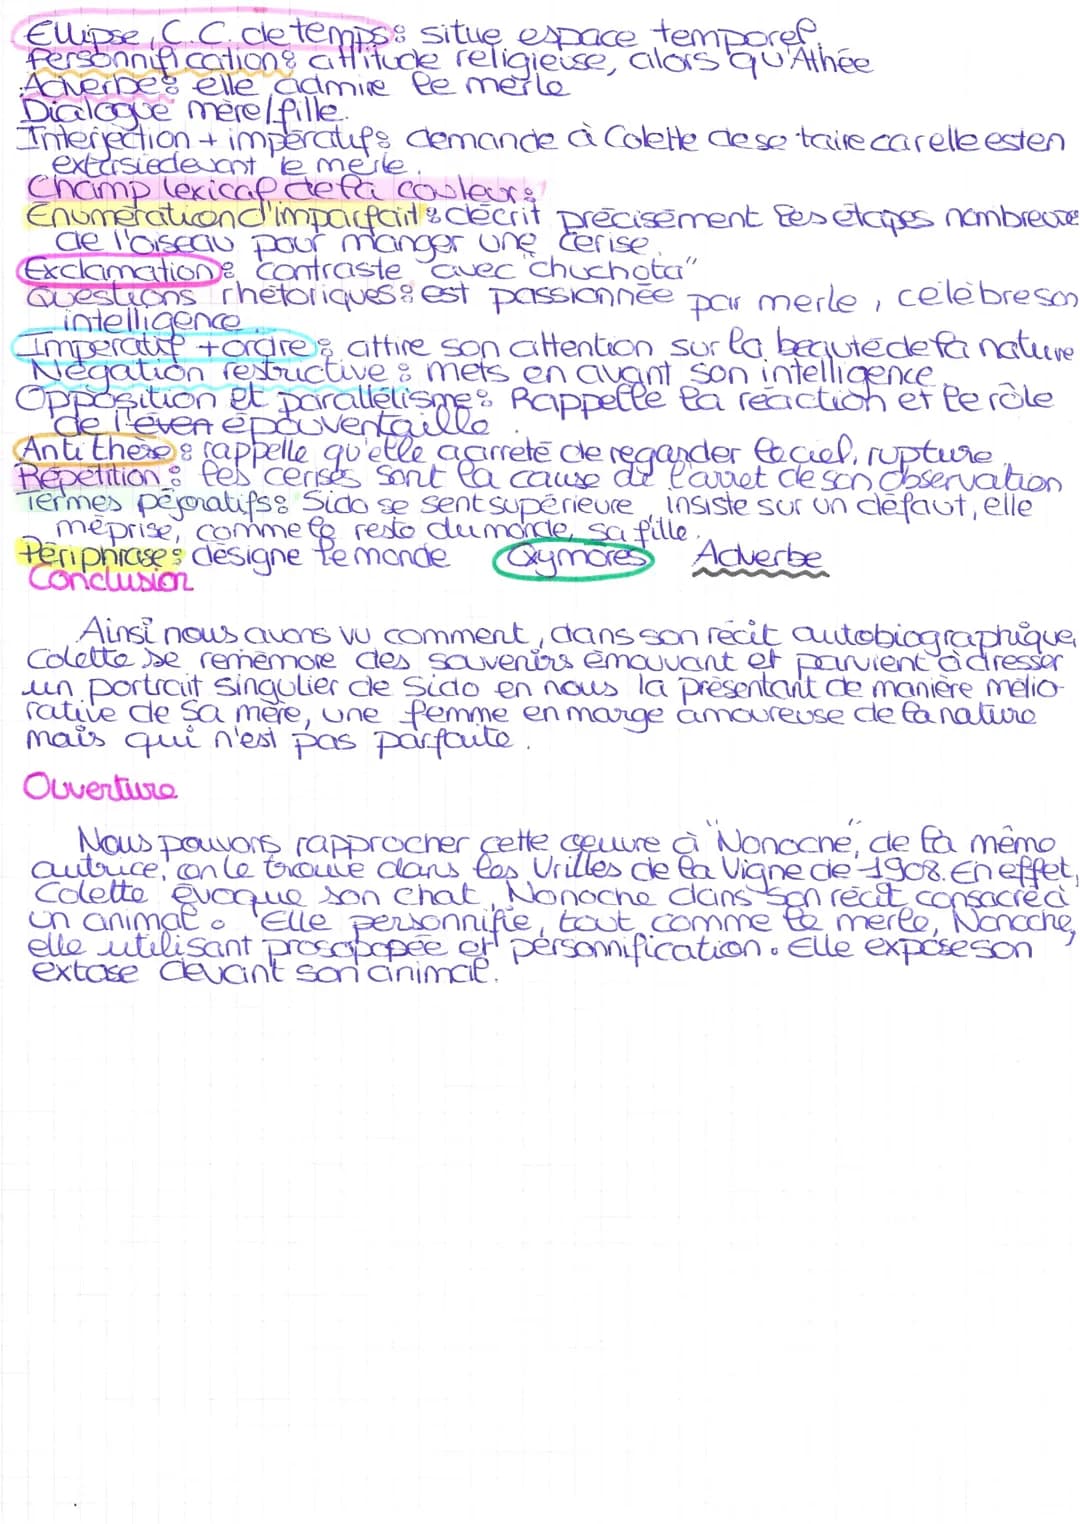 Ellipse, C.C. de temps : situe espace temporel
Personnification : attitude religieuse, alors qu'Athée
Adverbe : elle admire le merle
Dialogue mère/fille.
Interjection + impératif : demande à Colette de se taire car elle est en
extasiée devant le merle.
Champ lexical de la couleur :
Enumération d'imparfait : décrit précisément les étapes nombreuses
de l'oiseau pour manger une cerise.
Exclamation : contraste avec "chuchota"
Questions rhétoriques : est passionnée par merle, célèbre son
intelligence.
Impératif + ordre : attire son attention sur la beauté de la nature
Négation restrictive : mets en avant son intelligence.
Opposition et parallélisme : Rappelle la réaction et le rôle
de l'éven épouventaille.
Antithèse : rappelle qu'elle a arreté de regarder le ciel, rupture.
Répétition : les cerises sont la cause de l'arret de son observation
Termes péjoratifs : Sido se sent supérieure, insiste sur un défaut, elle
méprise, comme le reste du monde, sa fille.
Périphrase : désigne le monde Oxymores Adverbe
Conclusion
Ainsi nous avons vu comment, dans son récit autobiographique,
Colette se remémore des souvenirs émouvant et parvient à dresser
un portrait singulier de Sido en nous la présentant de manière mélio-
rative de sa mère, une femme en marge amoureuse de la nature
mais qui n'est pas parfaite.
Ouverture
Nous pouvons rapprocher cette œuvre à "Nonoche", de la même
autrice, on le trouve dans les Vrilles de la Vigne de 1908. En effet,
Colette évoque son chat, Nonoche dans son récit consacré à
un animal. Elle personnifie, tout comme le merle, Nonoche,
elle utilisant prosopopée et personnification. Elle expose son
extase devant son animal.